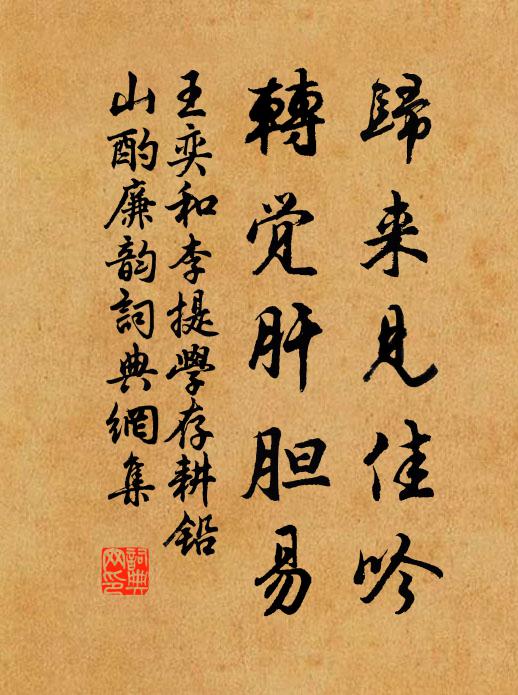 歸来見佳吟
轉觉肝胆易
王奕和李提學存耕鉛
山酌廉韵詞典網集
詞典
网印